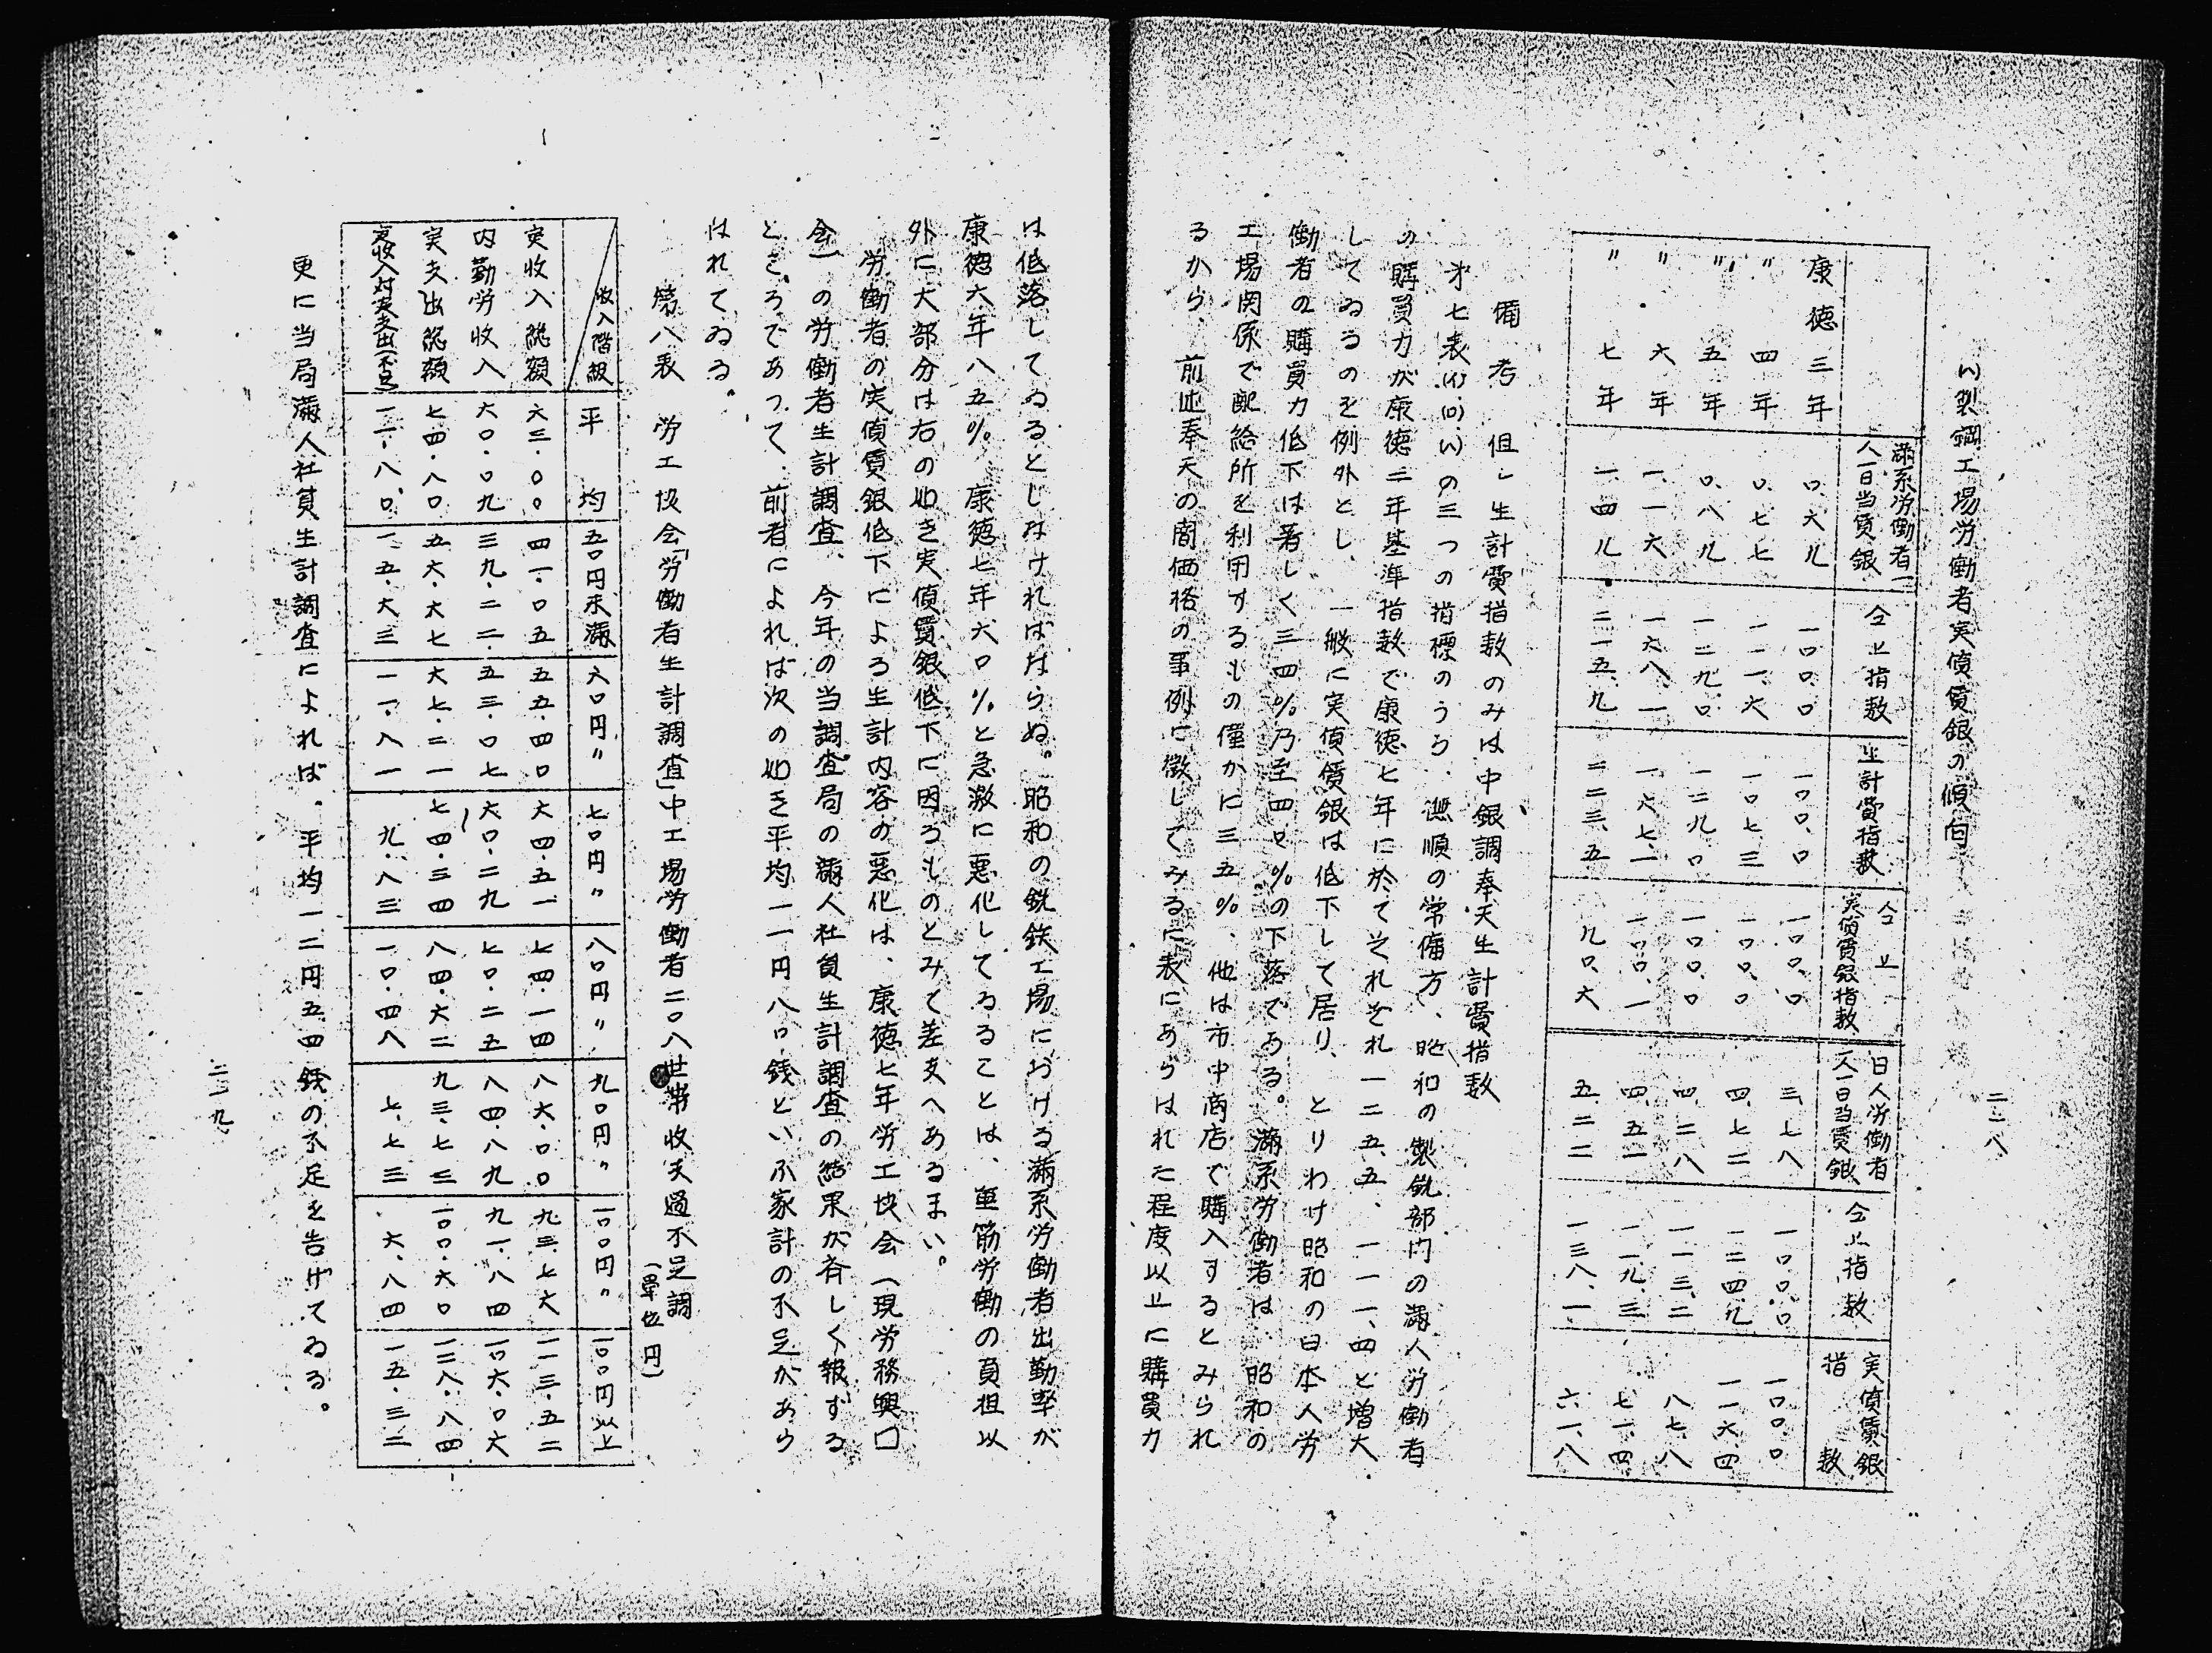 二一八
(ハ)製鋼工場労働者実質賃銀の傾向
満系労働者一人一日当賃銀 仝上指数 生計費指数 仝上実質賃銀指数 日人労働者一人一日当賃銀 仝上指数 実質賃銀指数
康徳三年 〇、六九 一〇〇、〇 一〇〇、〇 一〇〇、〇 三、七八 一〇〇、〇 一〇〇、〇
〃 四年 〇、七七 一一一、六 一〇七、三 一〇〇、〇 四、七二 一二四、九 一一六、四
〃 五年 〇、八九 一二九、〇 一二九、〇 一〇〇、〇 四、二八 一一三、二 八七、八
〃 六年 一、一六 一六八、一 一六七、一 一〇〇、一 四、五一 一一九、三 七一、四
〃 七年 一、四九 二一五、九 二二三、五 九〇、六 五、二二 一三八、一 六一、八
備考 但し生計費指数のみは中銀調奉天生計費指数
才七表(イ)(ロ)(ハ)の三つの指標のうち、撫順の常傭方、昭和の製銑部門の満人労働者
の購買力が康徳三年基準指数で康徳七年に於てそれぞれ一二五、五、一一一、四と増大
してゐるのを例外とし、一般に実質賃銀は低下して居り、とりわけ昭和の日本人労
働者の購買力低下は著しく三四%乃至四〇%の下落である。満系労働者は、昭和の
工場関係で配給所を利用するもの僅かに三五%、他は市中商店で購入するとみられ
るから、前述奉天の闇価格の事例に徴してみるに表にあらはれた程度以上に購買力
は低落してゐるとしなければならぬ。昭和の銑鉄工場における満系労働者出勤率が
康徳六年八五%、康徳七年六〇%と急激に悪化してゐることは、重筋労働の負担以
外に大部分は右の如き実質賃銀低下に因るものとみて差支へあるまい。
労働者の実質賃銀低下による生計内容の悪化は、康徳七年労工協会(現労務興囗
会)の労働者生計調査、今年の当調査局の満人社員生計調査の結果が斉しく報ずる
ところであつて、前者によれば次の如き平均一一円八〇銭といふ家計の不足があら
はれてゐる。
第八表 労工協会「労働者生計調査」中工場労働者二〇八世帯收支過不足調
(單位 円)
收入階級 平均 五〇円未満 六〇円〃 七〇円〃 八〇円〃 九〇円〃 一〇〇円〃 一〇〇円以上
実收入総額 六三・〇〇 四一・〇五 五五・四〇 六四・五一 七四・一四 八六・〇〇 九三・七六 一一三・五二
内勤労收入 六〇・〇九 三九・二二 五三・〇七 六〇・二九 七〇・二五 八四・八九 九一・八四 一〇六・〇六
実支出総額 七四・八〇 五六・六七 六七・二一 七四・三四 八四・六二 九三・七三 一〇〇・六〇 一二八・八四
実收入対実支出(不足) 一一・八〇 一五・六三 一一・八一 九・八三 一〇・四八 七・七三 六・八四 一五・三二
更に当局満人社員生計調査によれば、平均一二円五四銭の不足を告げてゐる。
二一九